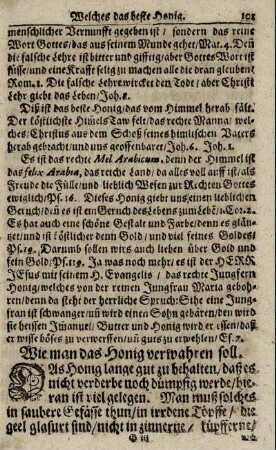 Welches das beste Honig. 101
menschlicher Vernunfft gegeben ist / sondern das reine
Wort Gottes / das aus seinem Munde gehet / Mat. 4. Deñ
die falsche Lehre ist bitter und gifftig / aber Gottes Wort ist
süsse / und eine Krafft selig zu machen alle die dran gleuben /
Rom. 1. Die falsche Lehre wircket den Todt / aber Christi
Lehr giebt das Leben / Joh. 8.
Diß ist das beste Honig / das vom Himmel herab fält.
Der köstlichste Him̃els Taw felt / das rechte Manna / wel-
ches / Christus aus dem Schoß seines himlischen Vaters
herab gebracht / und uns geoffenbaret / Joh. 6. Joh. 1.
Es ist das rechte Mel Arabicum, denn der Himmel ist
das felix Arabia, das reiche Land / da alles voll anff ist / als
Freude die Fülle / und lieblich Wesen zur Rechten Gottes
ewiglich / Ps. 16. Dieses Honig giebt uns einen lieblichen
Geruch / deñ es ist ein Geruch des Lebens zum Lebẽ / 1. Cor. 2.
Es hat auch eine schöne Gestalt und Farbe / denn es glän-
tzet / und ist köstlicher denn Gold / und viel feines Goldes /
Ps. 19. Darumb sollen wirs auch lieben über Gold und
fein Gold / Ps. 119. Ja was noch mehr / es ist der HERR
JEsus mit seinem H. Evangelio / das rechte Jungfern
Honig / welches von der reinen Jungfrau Maria geboh-
ren / denn da steht der herrliche Spruch: Sihe eine Jung-
fran ist schwanger / uñ wird einen Sohn gebären / den wird
sie heissen Jm̃anuel / Butter und Honig wird er essen / daß
er wisse böses zu verwerffen / uñ guts zu erwehlen / Es. 7.
Wie man das Honig verwahren soll.
DAs Honig lange gut zu behalten / daß es
nicht verderbe noch dümpfig werde / hie-
ran ist viel gelegen. Man muß solches
in saubere Gefässe thun / in irrdene Töpffe / die
geel glasurt sind / nicht in zinnerne / küpfferne /
G iij